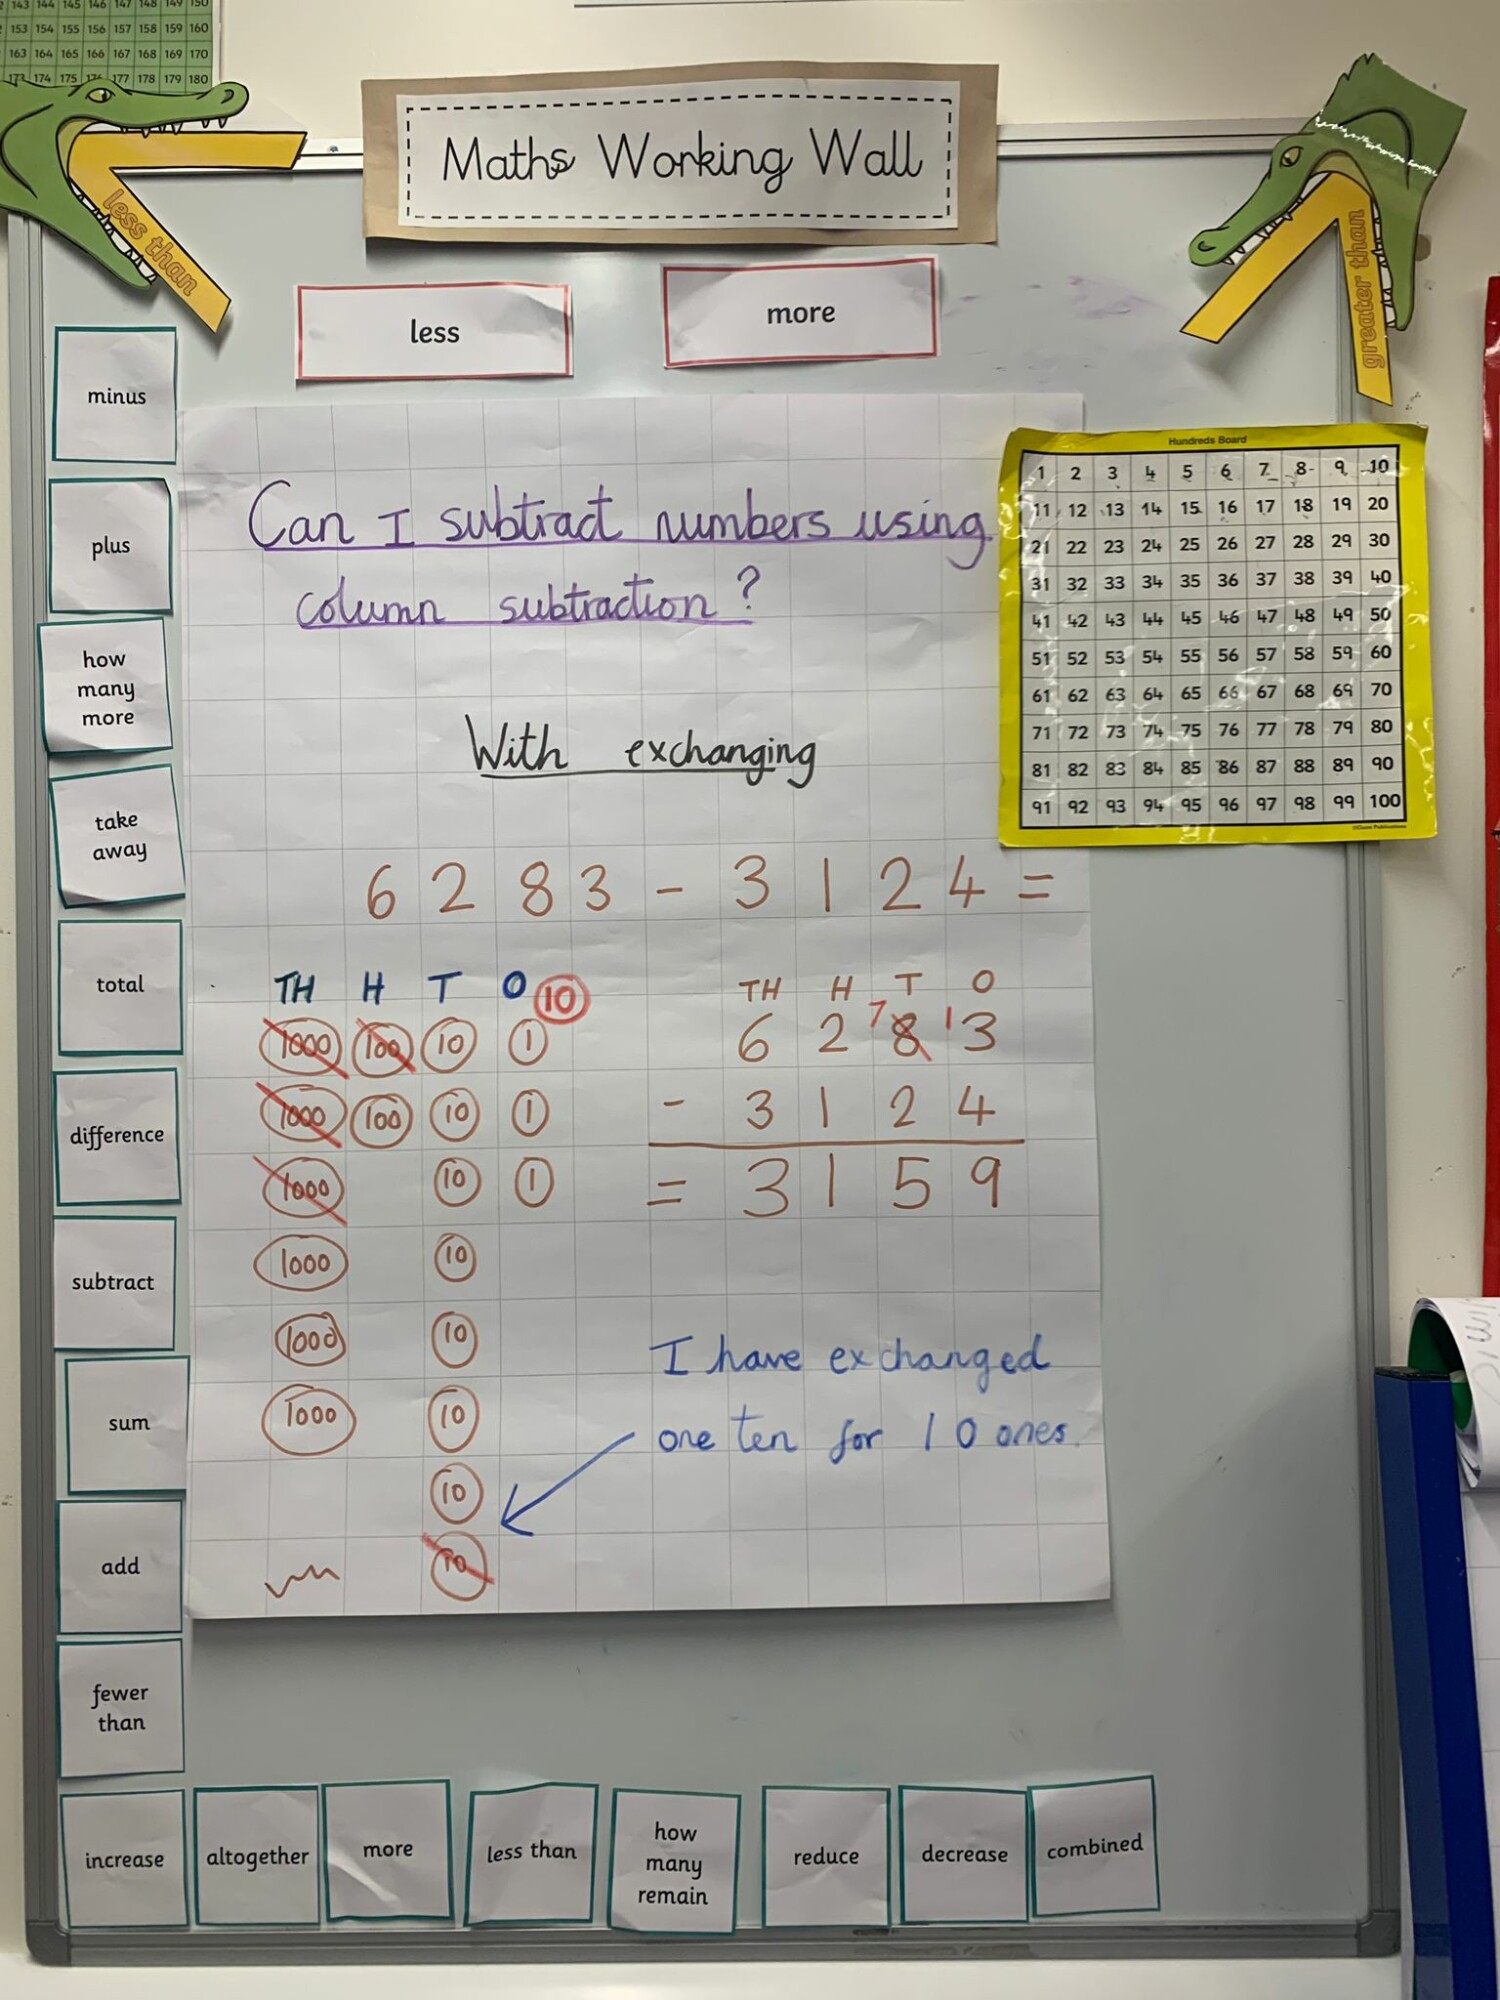 143 144 145 146 147 148 149 150
153 154 155 156 157 158 159 160
163 164 165 166 167 168 169 170
174 175 176 177 178 179 180
less than
Maths Working Wall
greater than
less
more
minus
plus
how
many
more
take
away
total
difference
subtract
sum
add
fewer
than
Can I subtract numbers using
column subtraction?
With exchanging
6283 - 3124 =
TH H T O 10
1000 100 10 1
1000 100 10 1
1000 10 1
1000 10
1000 10
1000 10
10
10
TH H T O
6 2 7 8 1 3
- 3 1 2 4
= 3 1 5 9
I have exchanged
one ten for 10 ones.
Hundreds Board
1 2 3 4 5 6 7 8 9 10
11 12 13 14 15 16 17 18 19 20
21 22 23 24 25 26 27 28 29 30
31 32 33 34 35 36 37 38 39 40
41 42 43 44 45 46 47 48 49 50
51 52 53 54 55 56 57 58 59 60
61 62 63 64 65 66 67 68 69 70
71 72 73 74 75 76 77 78 79 80
81 82 83 84 85 86 87 88 89 90
91 92 93 94 95 96 97 98 99 100
increase
altogether
more
less than
how
many
remain
reduce
decrease
combined